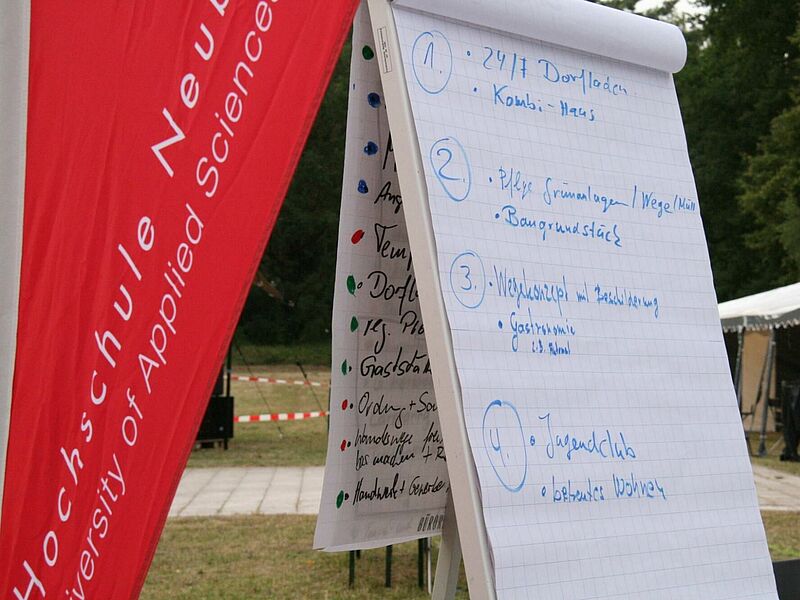 Hochschule Neub
versity of Applied Science
1. • 24/7 Dorfladen
• Kombi-Haus
2. • Pflege Grünanlagen/Wege/Müll
• Baugrundstück
3. • Wegekonzept mit Beschilderung
• Gastronomie
z.B.
4. • Jugendclub
• betreutes Wohnen
Ang
Temp
• Dorfl
• reg. Pro
• Gaststät
• Ordnung + Sau
• Wanderwege
• Handwerk + Gewerbe